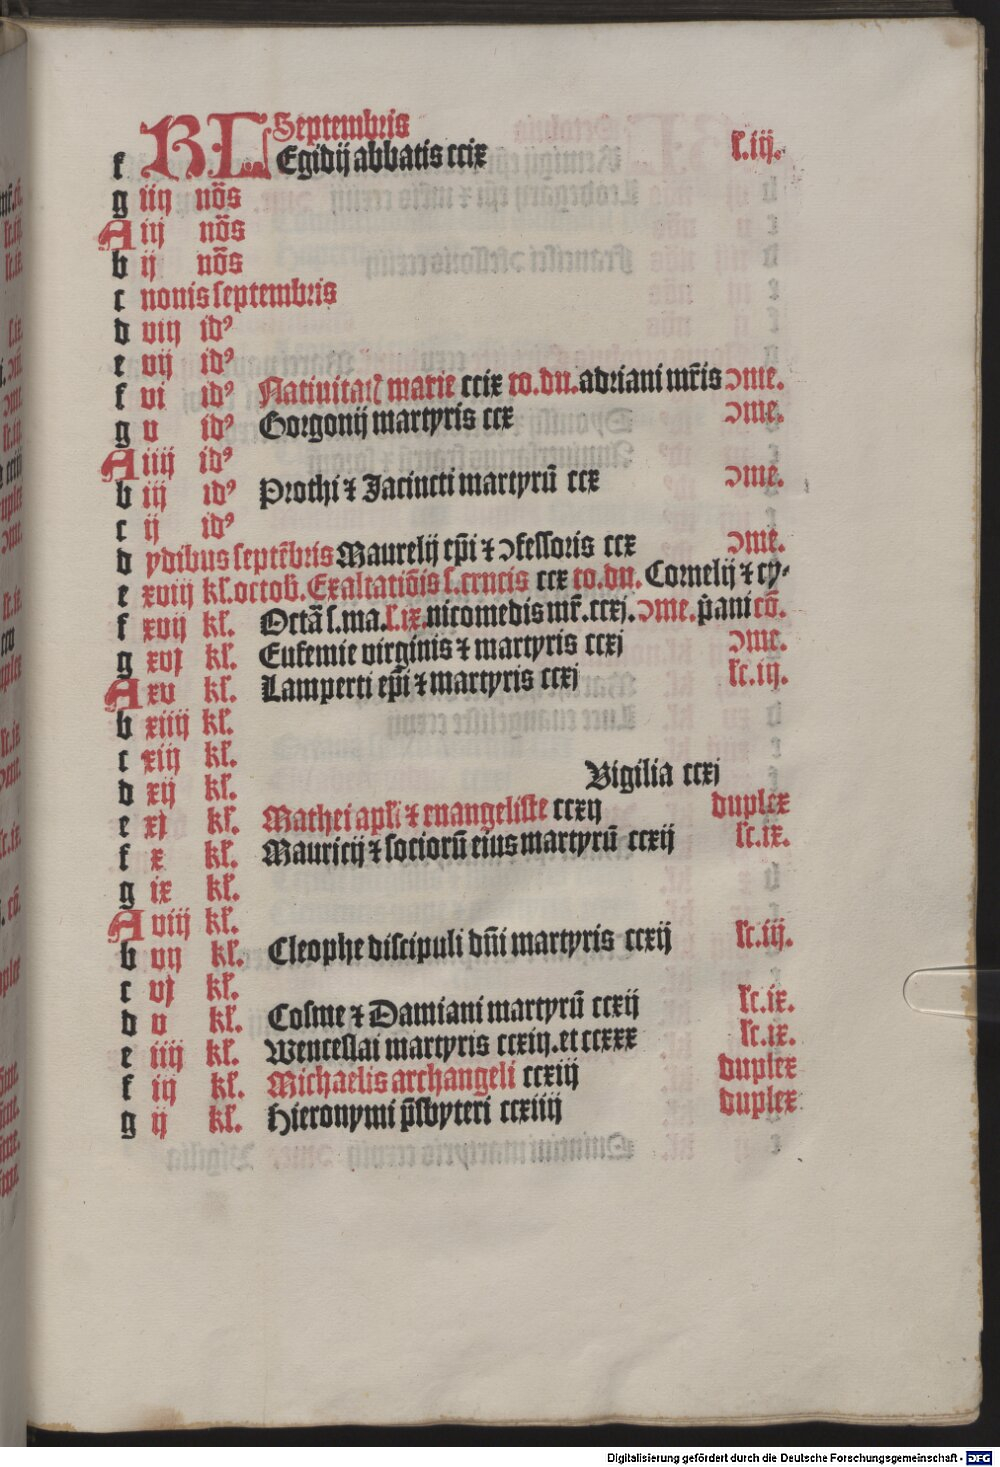 KL Septembris
f Egidij abbatis ccix ſc.iij.
g iiij nōs
A iij nōs
b ij nōs
c nonis ſeptembris
d viij idꝰ
e vij idꝰ
f vi idꝰ Natiuitatꝭ marie ccix to.du. adriani mr̄is ↄme.
g v idꝰ Gorgonij martyris ccx ↄme.
A iiij idꝰ
b iij idꝰ Prothi ⁊ Jacincti martyrū ccx ↄme.
c ij idꝰ
d ydibus ſeptēbris Maurelij ep̄i ⁊ ↄfeſſoris ccx ↄme.
e xviij kł. octob̄. Exaltatiōis ſ. crucis ccx to.du. Cornelij ⁊ cy-
f xvij kł. Octā ſ. ma. ſ.ix. nicomedis mr̄. ccxj. ↄme. p̄ani cō.
g xvj kł. Eufemie virginis ⁊ martyris ccxj ↄme.
A xv kł. Lamperti ep̄i ⁊ martyris ccxj ſc.iij.
b xiiij kł.
c xiij kł.
d xij kł. Vigilia ccxj
e xj kł. Mathei apłi ⁊ euangeliſte ccxij duplex
f x kł. Mauricij ⁊ ſociorū eius martyrū ccxij ſc.ix.
g ix kł.
A viij kł.
b vij kł. Cleophe diſcipuli dn̄i martyris ccxij ſc.iij.
c vj kł.
d v kł. Coſme ⁊ Damiani martyrū ccxij ſc.ix.
e iiij kł. Wenceſlai martyris ccxiij. et ccxxx ſc.ix.
f iij kł. Michaelis archangeli ccxiij duplex
g ij kł. Hieronymi p̄ſbyteri ccxiiij duplex
Digitalisierung gefördert durch die Deutsche Forschungsgemeinschaft - DFG